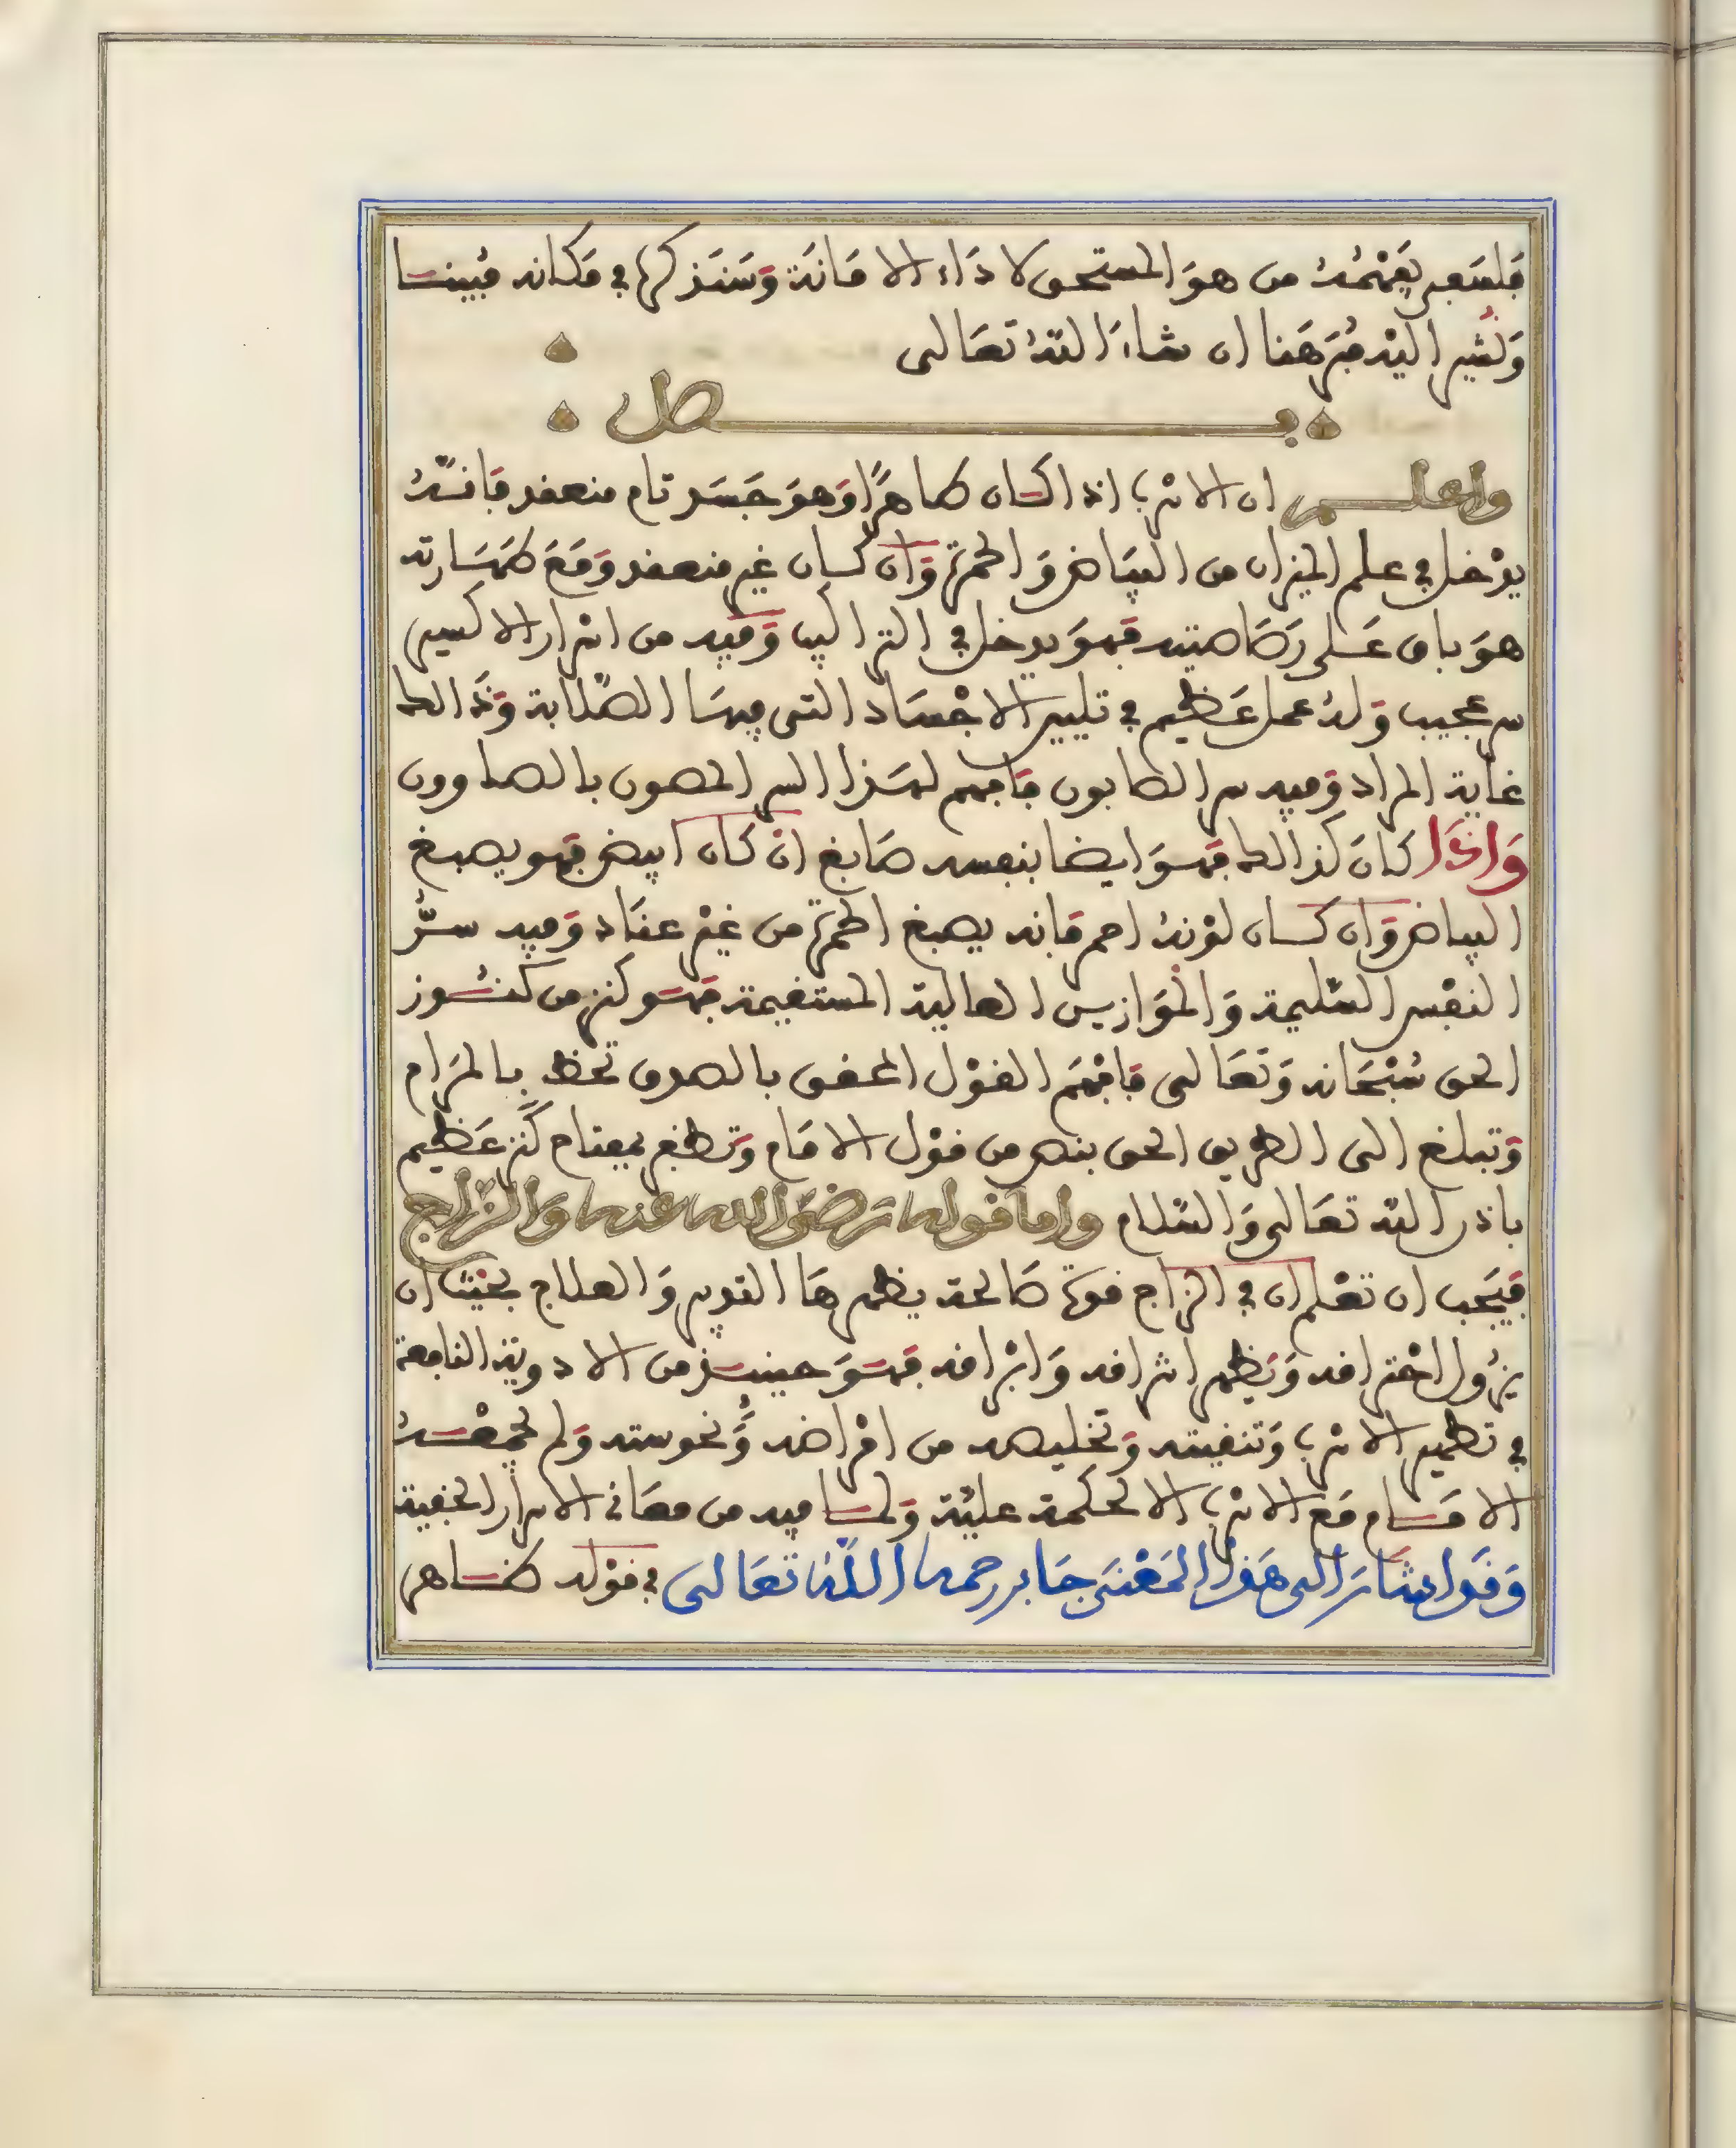 فلسعى يفهمه من هو المستحق لاداء الامانة وسنذكرها في مكانه مبينا
ونشير اليه من هنا ان شاء الله تعالى
فصل
واعلم ان الانرب اذا كان طاهرًا وهو جسد تام منعقد فانه
يدخل في علم الميزان من البياض والحمرة وان كان غير منعقد ومع طهارته
هو باق على رصاصيته فهو يدخل في التراكيب وفيه من اسرار الاكسير
سر عجيب وله عمل عظيم في تليين الاجساد التي فيها الصلابة وذالك
غاية المراد وفيه سر الصابون فافهم لهذا السر المصون بالصاوون
واذا كان كذالك فهو ايضا بنفسه صابغ ان كان ابيض فهو يصبغ
البياض وان كان لونه احمر فانه يصبغ الحمرة من غير عناد وفيه سرُّ
النفس السليمة والموازين العالية المستقيمة فهو كنز من كنوز
الحق سبحانه وتعالى فافهم القول المحقق بالصدق تحظ بالمرام
وتبلغ الى الطريق الحق بنص من قول الامام وتظفر بمفتاح كنز عظيم
باذن الله تعالى والسلام واما قوله رضي الله عنه والزاج
فيجب ان تعلم ان في الزاج قوة صالحة يظهرها التدبير والعلاج بحيث ان
يزول احتراقه ويظهر اشراقه وابراقه فهو حينئذ من الادوية النافعة
في تطهير الانرب وتنقيته وتخليصه من امراضه ونحوسته ولم يجمعه
الامام مع الانرب الا لحكمة عليّة ولما فيه من معاني الاسرار الخفية
وقد اشار الى هذا المعنى جابر رحمه الله تعالى في قوله كناهر